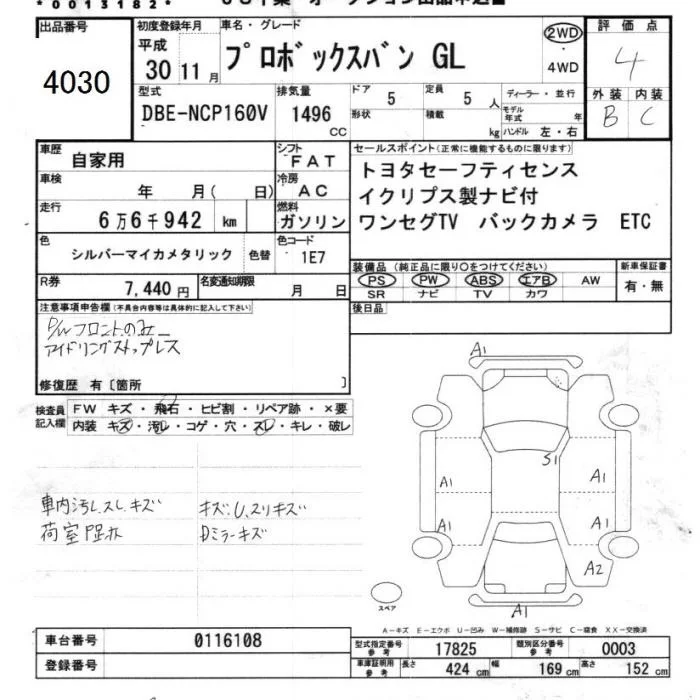 *0013182*
出品番号
4030
初度登録年月
平成
30年11月
車名・グレード
プロボックスバン GL
2WD
・
4WD
評価点
4
外装 内装
B C
型式
DBE-NCP160V
排気量
1496
CC
ドア
5
定員
5 人
形状
積載
kg
ディーラー・並行
モデル年式 年
ハンドル 左・右
車歴
自家用
シフト
FAT
車検
年 月( 日)
冷房
AC
走行
6万6千942 km
燃料
ガソリン
色
シルバーマイカメタリック 色替
色コード
1E7
R券
7,440円
名変通知期限
月 日
セールスポイント(正常に機能するものに限ります)
トヨタセーフティセンス
イクリプス製ナビ付
ワンセグTV バックカメラ ETC
装備品(純正品に限り○をつけてください)
PS PW ABS エアB AW
SR ナビ TV カワ
新車保証書
有・無
後日品
注意事項申告欄(不具合内容等は具体的に記入して下さい)
P/Wフロントのみ
アイドリングストップレス
修復歴 有〔箇所 〕
検査員
記入欄
FW キズ・飛石・ヒビ割・リペア跡・×要
内装 キズ・汚レ・コゲ・穴・スレ・キレ・破レ
車内汚レ、スレ、キズ
荷室
キズ、U、スリキズ
Dミラーキズ
A1
S1
A1
A1
A1
A1
A2
A1
スペア
A-キズ E-エクボ U-凹み W-補修跡 S-サビ C-腐食 XX-交換済
車台番号
0116108
登録番号
型式指定番号
参考
17825
類別区分番号
参考
0003
車庫証明用
参考
長さ 424 cm
幅 169 cm
高さ 152 cm